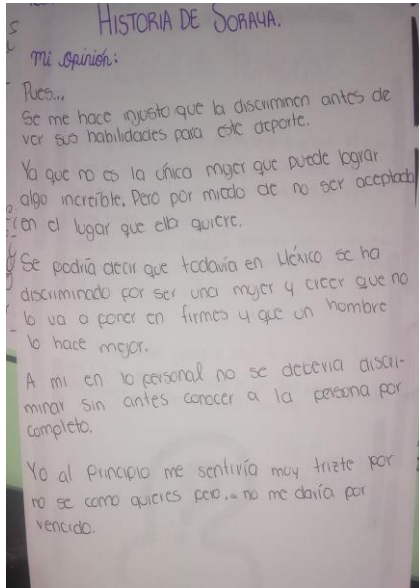 HISTORIA DE SORAYA.
mi opinión:
Pues...
Se me hace injusto que la discriminen antes de
ver sus habilidades para este deporte.
Ya que no es la única mujer que puede lograr
algo increíble. Pero por miedo de no ser aceptada
en el lugar que ella quiere.
Se podría decir que todavía en México se ha
discriminado por ser una mujer y creer que no
lo va a poner en firmes y que un hombre
lo hace mejor.
A mi en lo personal no se debería discri-
minar sin antes conocer a la persona por
completo.
Yo al principio me sentiría muy trizte por
no se como quieres pero.. no me daría por
vencido.